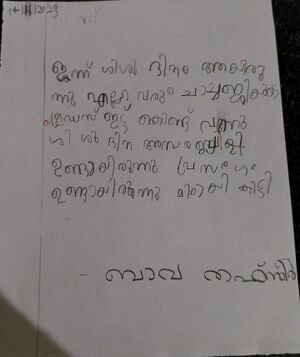 14/11/2023
ഇന്ന് ശിശു ദിനം ആയിരു
ന്നു എല്ലാ വരും ചാച്ചാജിയുടെ
ഡ്രസ് ഇട്ട് കൊണ്ട് വന്നു
ശി ശു ദിന അസംബ്ലി
ഉണ്ടായിരുന്നു പ്രസംഗം
ഉണ്ടായിരുന്നു മിഠായി കിട്ടി
- ബാവ തഹ്സീൻ